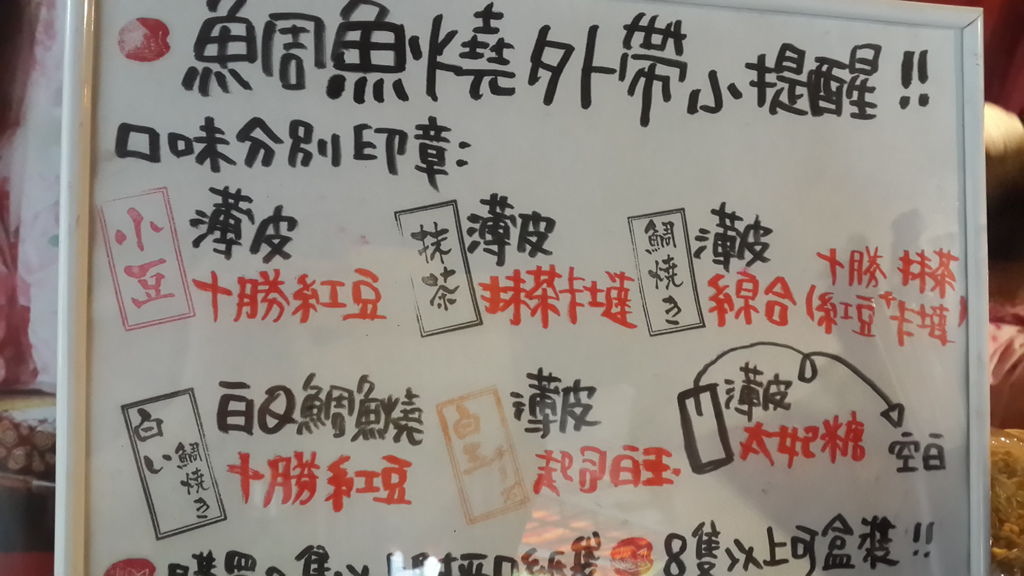 鯛魚燒外帶小提醒!!
口味分別印章:
小豆
薄皮
十勝紅豆
抹茶
薄皮
抹茶卡墶
鯛焼き
薄皮
綜合(十勝紅豆+抹茶卡墶)
白い鯛焼き
白Q鯛魚燒
十勝紅豆
白玉
薄皮
起司白玉
薄皮
太妃糖
空白
8隻以上可盒裝!!